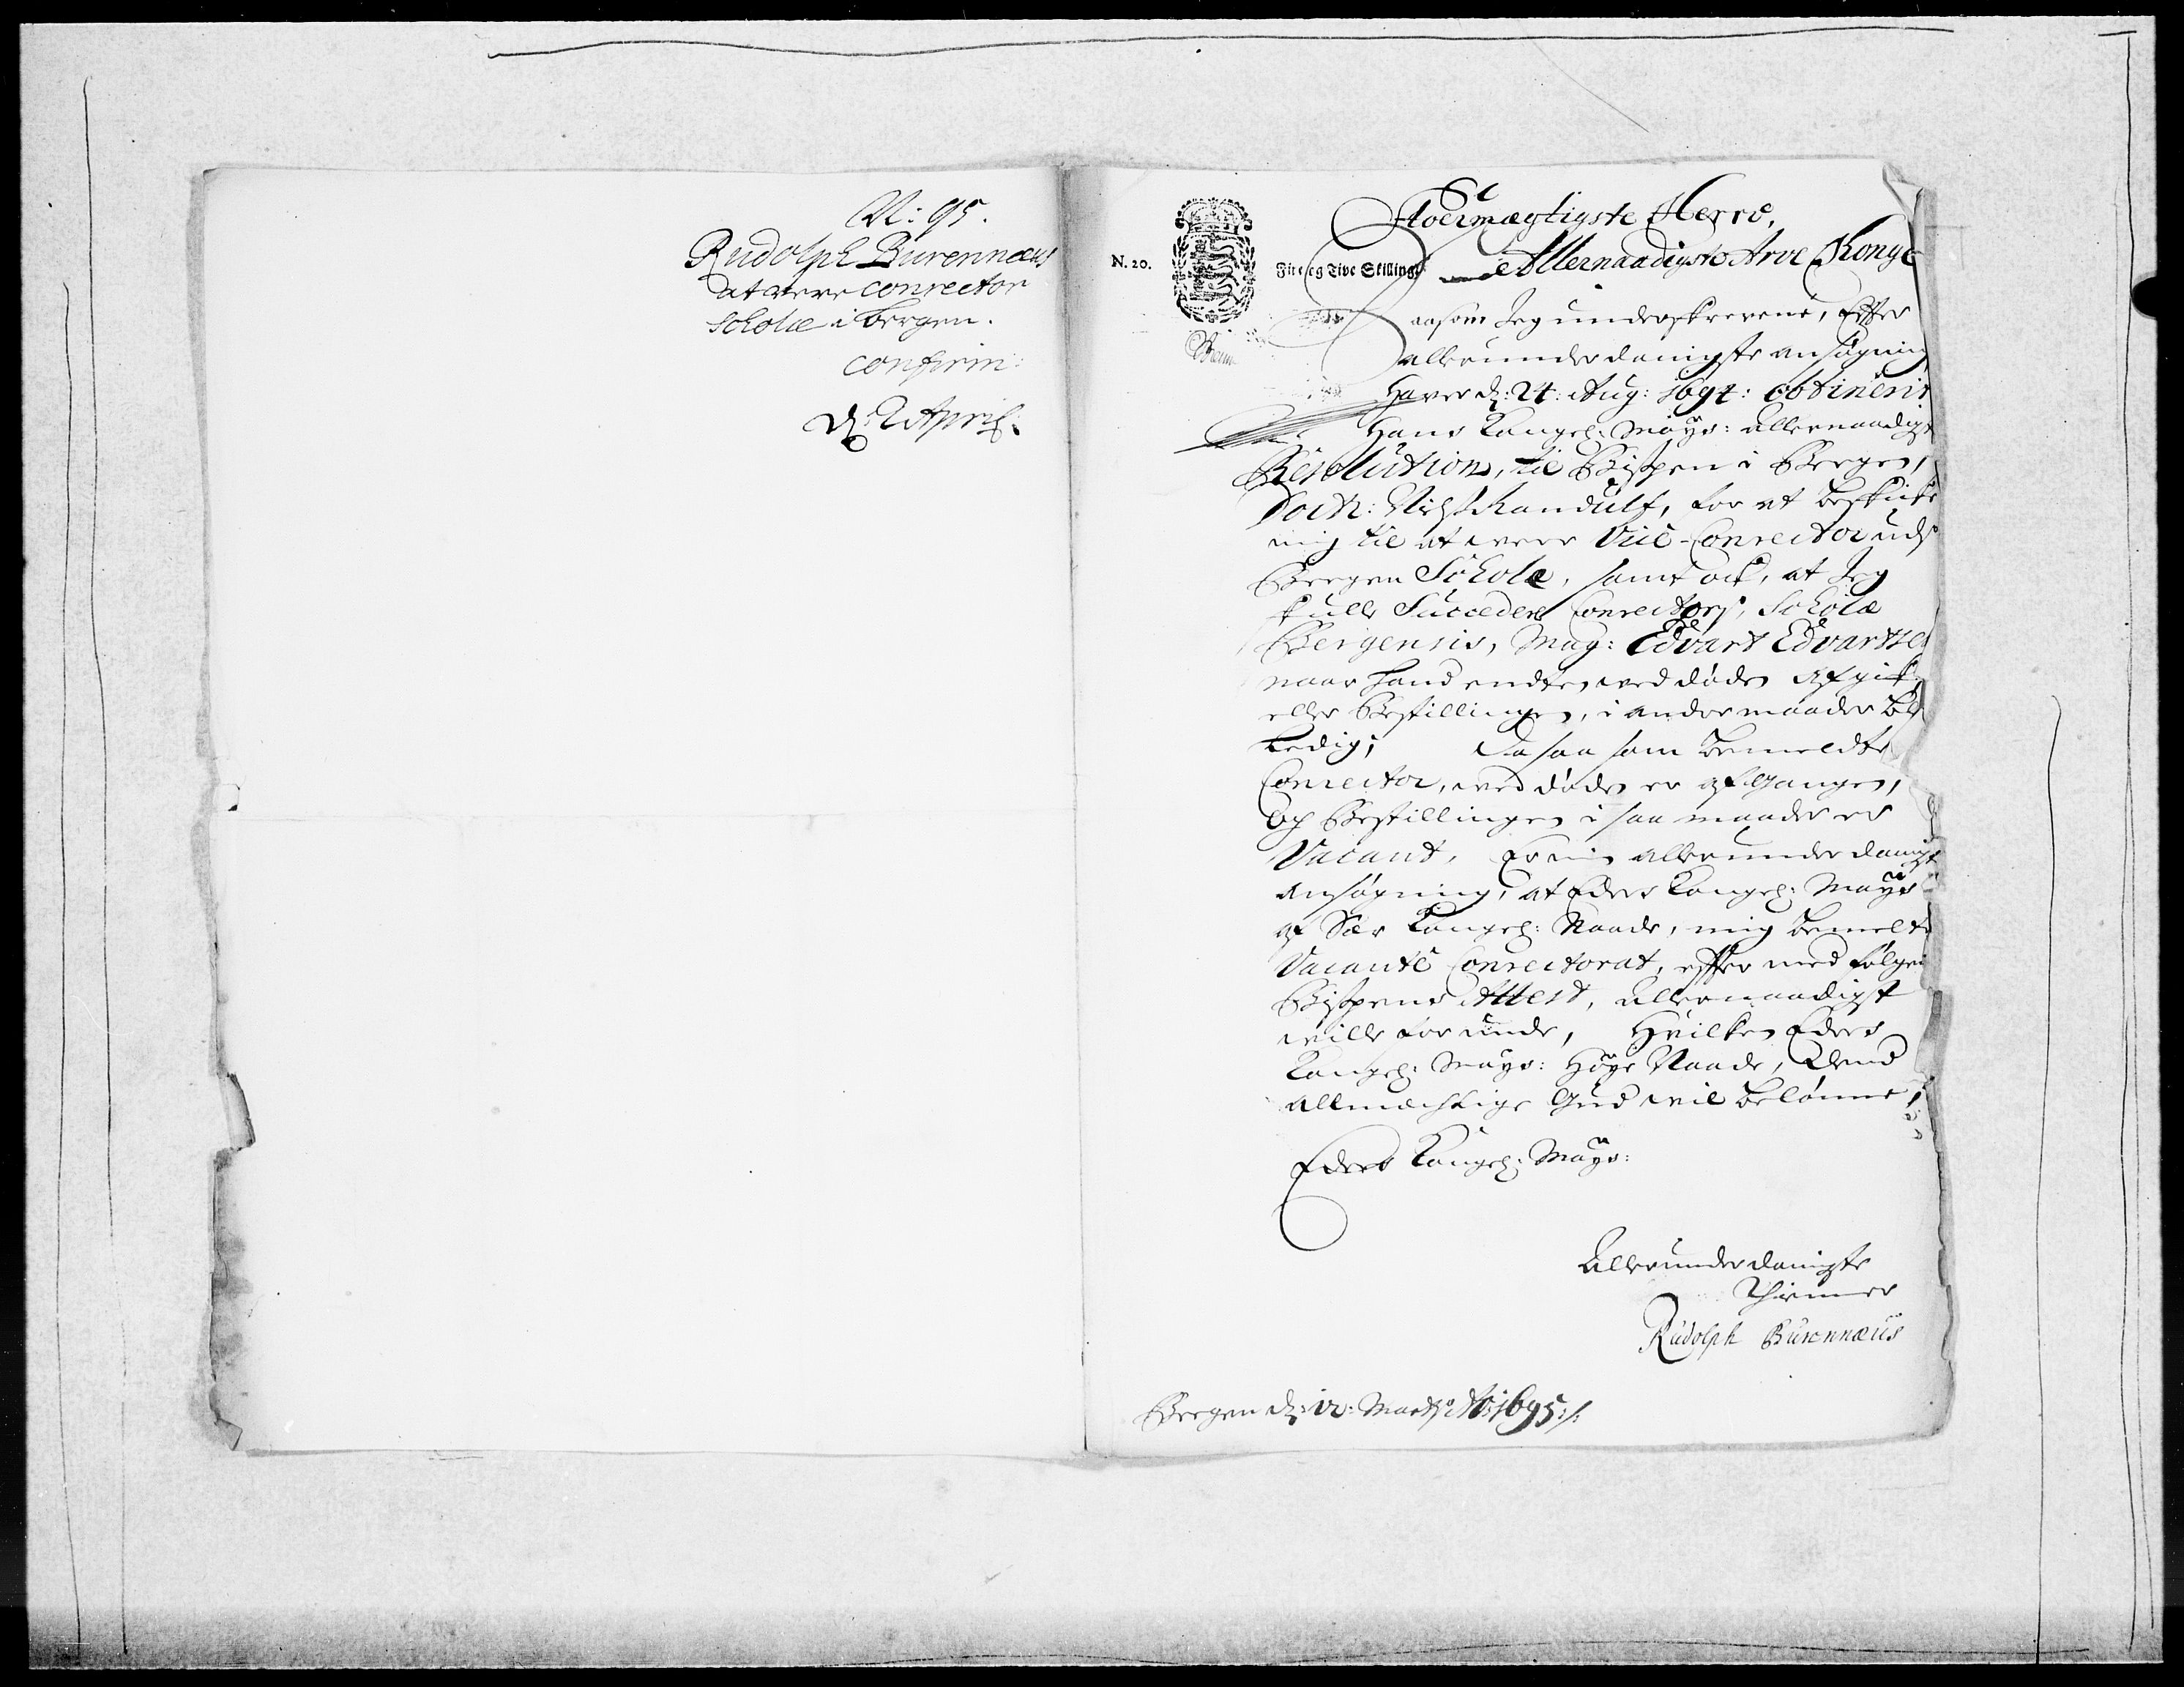 N: 95.
Rudolph Burennæus
at være conrector
Scholæ i Bergen.
confirm:
d: 2 April:
N. 20.
Fire og Tive Skilling
Stoermægtigste Herre,
Allernaadigste Arve Konge
aasom Jeg underskrevene, Effter
allerunderdanigste ansøgning
Haver d: 24: Aug: 1694: obtinerit
Hans Kongel: Mayt: allernaadigst
Resolution, til Bispen i Bergen,
Doct: Nils Randulf, for at beskicke
mig til at være Vice-Conrector udj
Bergen Scholæ, samt ock, at Jeg
skulle Succedere Conrectorj, Scholæ
Bergensis, Mag: Edvart Edvartsen
naar hand endten ved døden afgick,
eller Bestillingen, i andre maader blef
ledig; Da saa som bemeldte
Conrector, ved døden er afgangen,
Og Bestillingen i saa maader er
Vacant, Er min allerunderdanigst
ansøgning, at Eders Kongel: Mayt
af Sær Kongel: Naade, mig bemelte
Vacante Conrectorat, effter med følgende
Bispens Attest, allernaadigst
wille forunde, Hvilken Eders
Kongel: Mayt: Høye Naade, Dend
allmæchtige Gud wil belønne,
Eders Kongel: Mayt:
Allerunderdanigste
Thienner
Rudolph Burennæus
Bergen d: 12: Martj Ao: 1695:/: